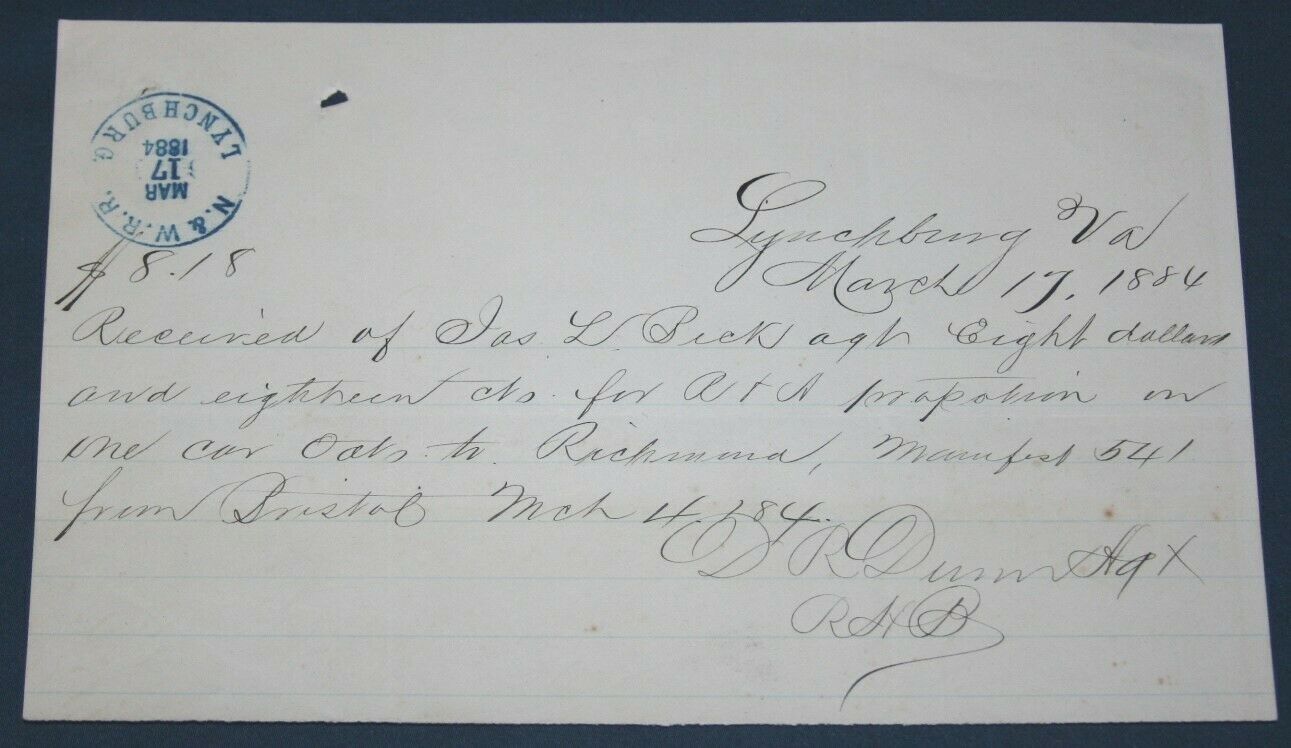 N. & W. R. R.
MAR
17
1884
LYNCHBURG
Lynchburg Va
$8.18
March 17, 1884
Received of Jas L. Peck agt Eight dollars
and eighteen cts. for R & A propotion on
one car Oats to Richmond, Manifest 541
from Bristol Mch 4, /84.
D R Dunn Agt
R H B